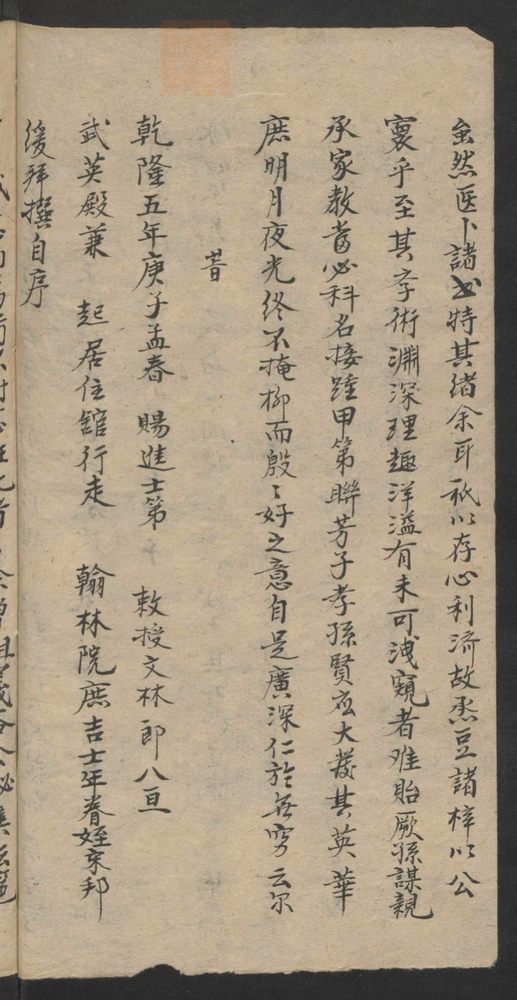 虽然医卜諸書特其绪余耳秪以存心利済故悉豆諸梓以公
寰乎至其孛術淵深理趣洋溢有未可洩窺者难貽厥孫謀親
承家教當必科名接踵甲第聨芳子孝孫賢应大發其英華
庶明月夜光终不掩柳而殷〻好之意自是廣深仁於無穷云尔
昔
乾隆五年庚子孟春 賜進士第 敕授文林郎八亘
武英殿兼 起居住館行走 翰林院庶吉士年眷姪宋邦
绥拜撰自序